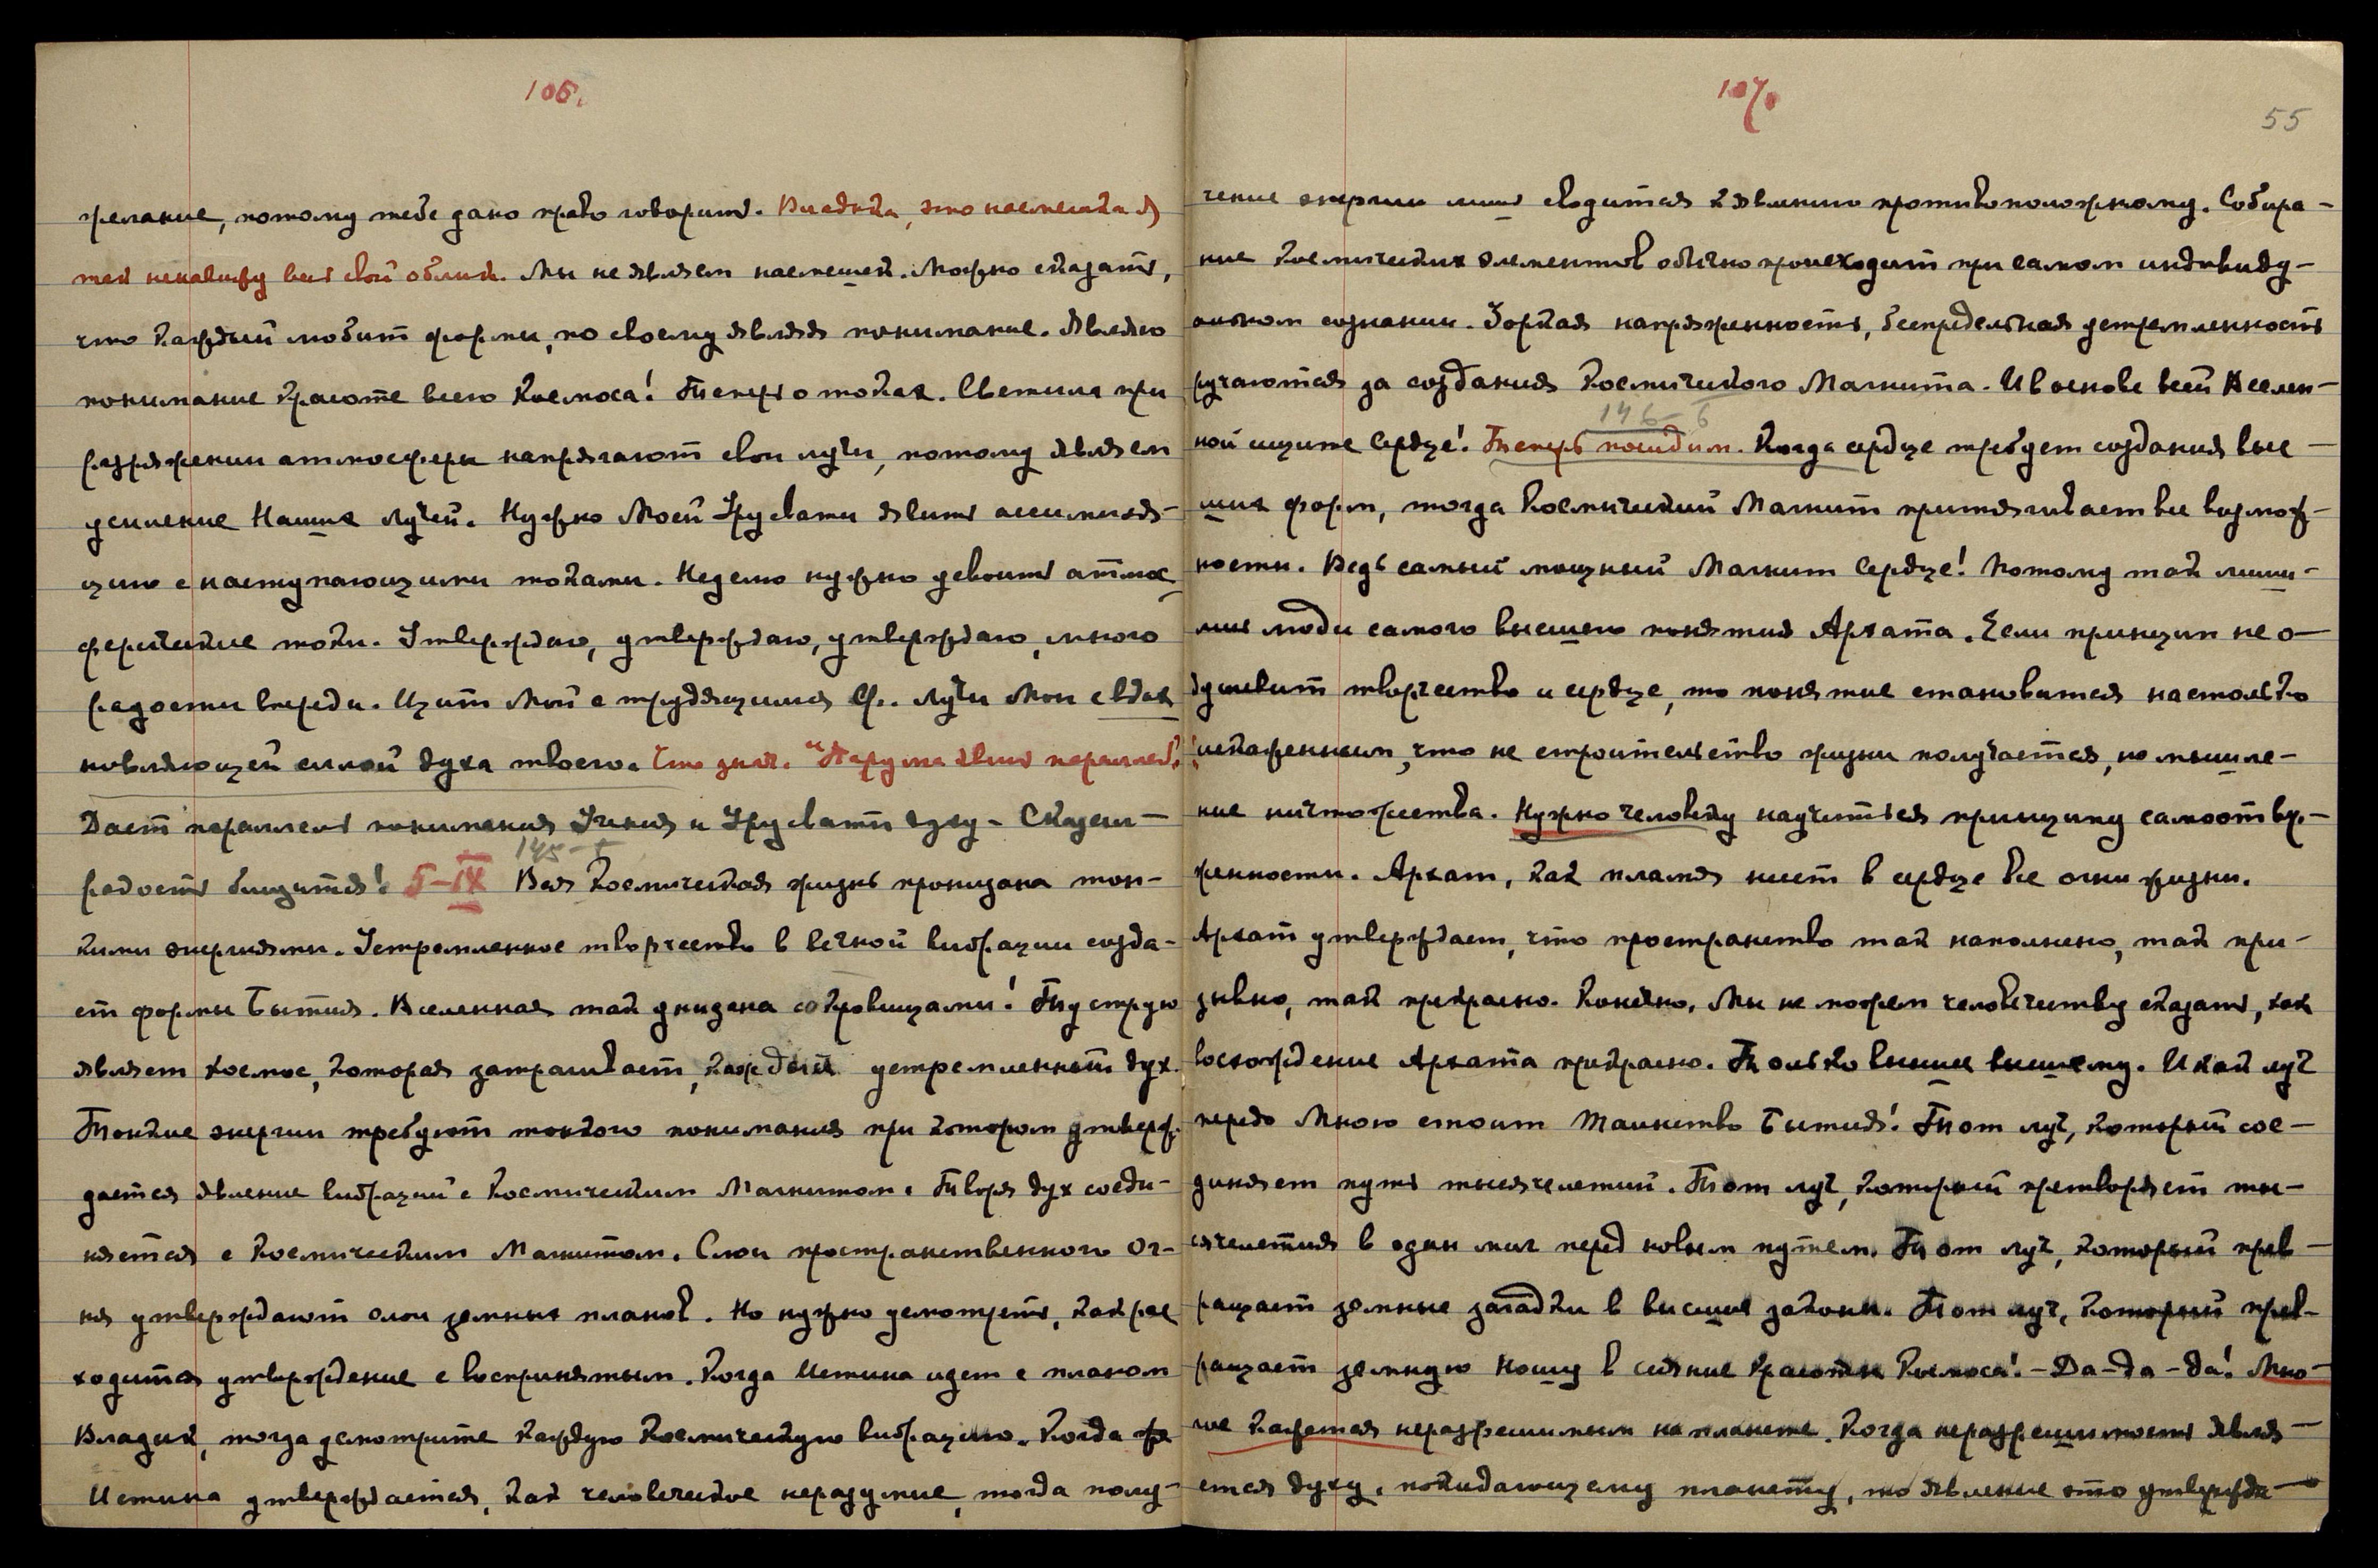 106.
желание, потому тебе дано право говорить. Владыка, это насмешка, я
так ненавижу весь свой облик. Мы не являем насмешек. Можно сказать,
что каждый любит формы, по своему являя понимание. Являю
понимание красоте всего Космоса! Теперь о токах. Светила при
разряжении атмосферы напрягают свои лучи, потому являем
усиление Наших лучей. Нужно Моей Урусвати явить ассимиля-
цию с наступающими токами. Неделю нужно усвоить атмос
ферические токи. Утверждаю, утверждаю, утверждаю, много
радости впереди. Щит Мой с трудящимися Ф.. Лучи Мои с вдох
новляющей силой духа твоего. Что знач. "Тарума явит параллель".
Даст параллель понимания Учения и Урусвати одну - Скажем -
145-т
радость близится! 5-IX Вся космическая жизнь пронизана тон-
кими энергиями. Устремленное творчество в вечной вибрации созда-
ет формы Бытия. Вселенная так унизана сокровищами! Ту струю
являет космос, которая затрагивает каждый устремленный дух.
Тонкие энергии требуют тонкого понимания при котором утверж.
дается явление вибраций с Космическим Магнитом. Творя дух соеди-
няется с Космическим Магнитом. Слои пространственного Ог-
ня утверждают слои земных планов. Но нужно усмотреть, как рас
ходится утверждение с воспринятым. Когда Истина идет с планом
Владык, тогда усмотрите каждую Космическую вибрацию. Когда же
Истина утверждается, как человеческое неразумие, тогда полу-
107.
55
чение энергии лишь сводится к явлению противоположному. Собира-
ние космических элементов обычно происходит при самом индивиду-
альном сознании. Зоркая напряженность, беспредельная устремленность
ручаются за создания Космического Магнита. И в основе всей Вселен-
146-б
ной ищите Сердце! Теперь посидим. Когда сердце требует создания выс -
ших форм, тогда Космический Магнит притягивает все возмож-
ности. Ведь самый мощный Магнит Сердце! Потому так лиши-
лись люди самого высшего понятия Архата. Если принцип не о-
душевит творчество и сердце, то понятие становится настолько
искаженным, что не строительство жизни получается, но мышле-
ние ничтожества. Нужно человеку научиться принципу самоотвер.-
женности. Архат, как пламя несет в сердце все огни жизни.
Архат утверждает, что пространство так наполнено, так при-
зывно, так прекрасно. Конечно, Мы не можем человечеству сказать, как
восхождение Архата прекрасно. Только высшее высшему. И как луч
передо Мною стоит Таинство Бытия! Тот луч, который сое-
диняет путь тысячелетий. Тот луч, который претворяет ты-
сячелетия в один миг перед новым путем. Тот луч, который прев -
ращает земные загадки в высшие законы. Тот луч, который прев-
ращает земную ношу в сияние красоты Космоса! - Да - да - да! Мно-
гое кажется неразрешимым на планете. Когда неразрешимость явля-
ется духу, покидающему планету, то явление это утвержда-